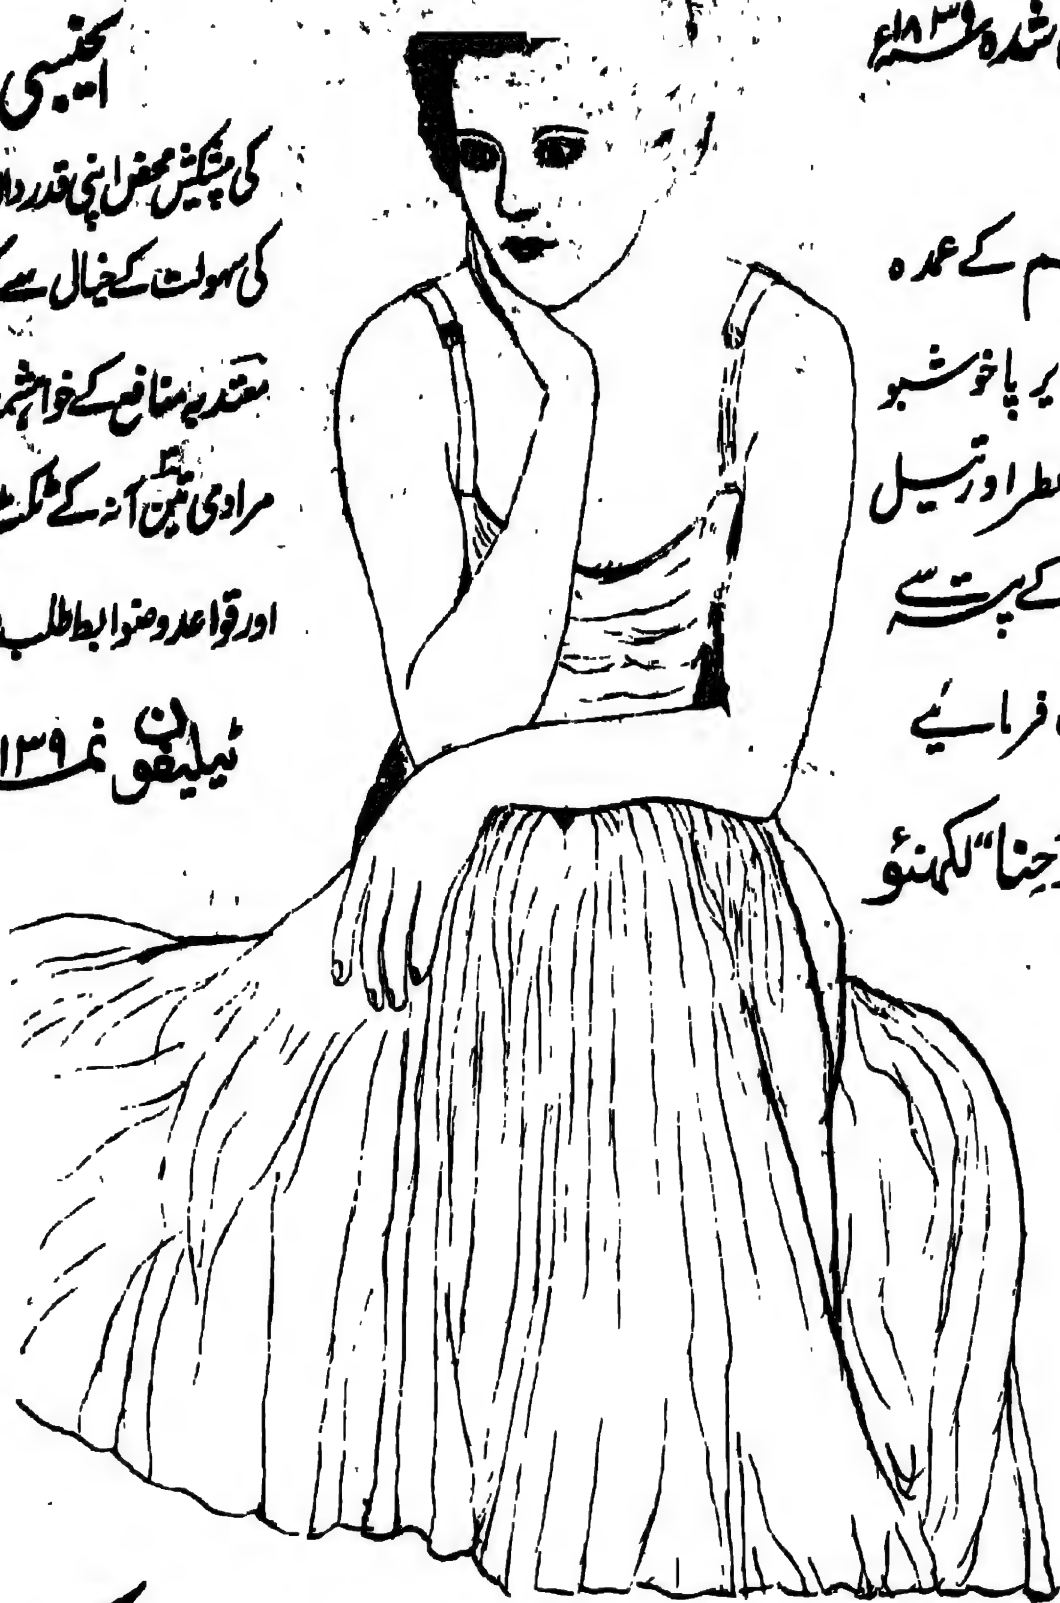 شدہ ۱۸۳۹ء
کے عمدہ
پا خوشبو
اور تیل
کے پتہ سے
فرمائیے
حنا“ لکھنئو
ایجنسی
کی پیشکش محض اپنی
کی سہولت کے خیال سے
معتدبہ منافع کے
مرادی تین آنہ کے ٹکٹ
اور قواعد و ضوابط طلب
ٹیلیفون نمـ ۱۳۹